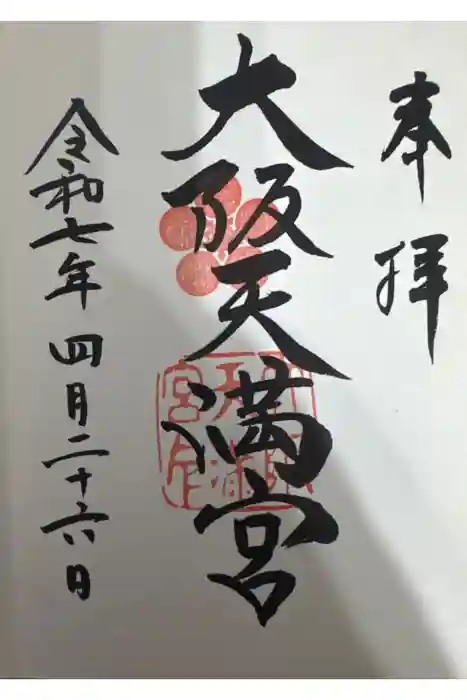 奉拝
大阪天満宮
令和七年 四月二十六日